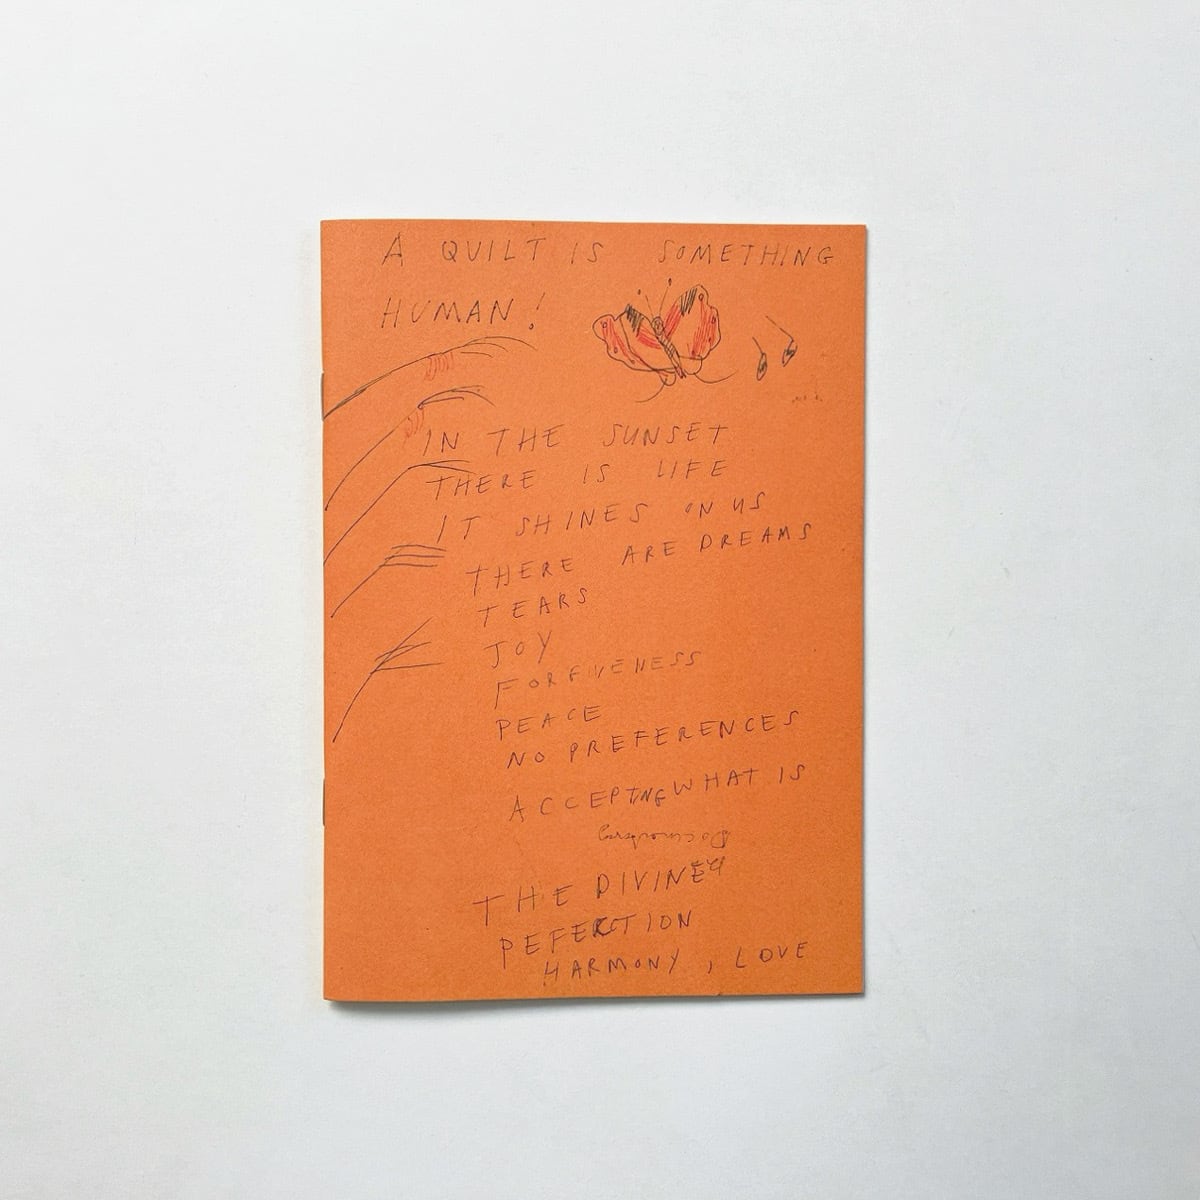 A QUILT IS SOMETHING
HUMAN!
IN THE SUNSET
THERE IS LIFE
IT SHINES ON US
THERE ARE DREAMS
TEARS
JOY
FORGIVENESS
PEACE
NO PREFERENCES
ACCEPTING WHAT IS
Documentary
THE DIVINE
PEFECTION
HARMONY, LOVE